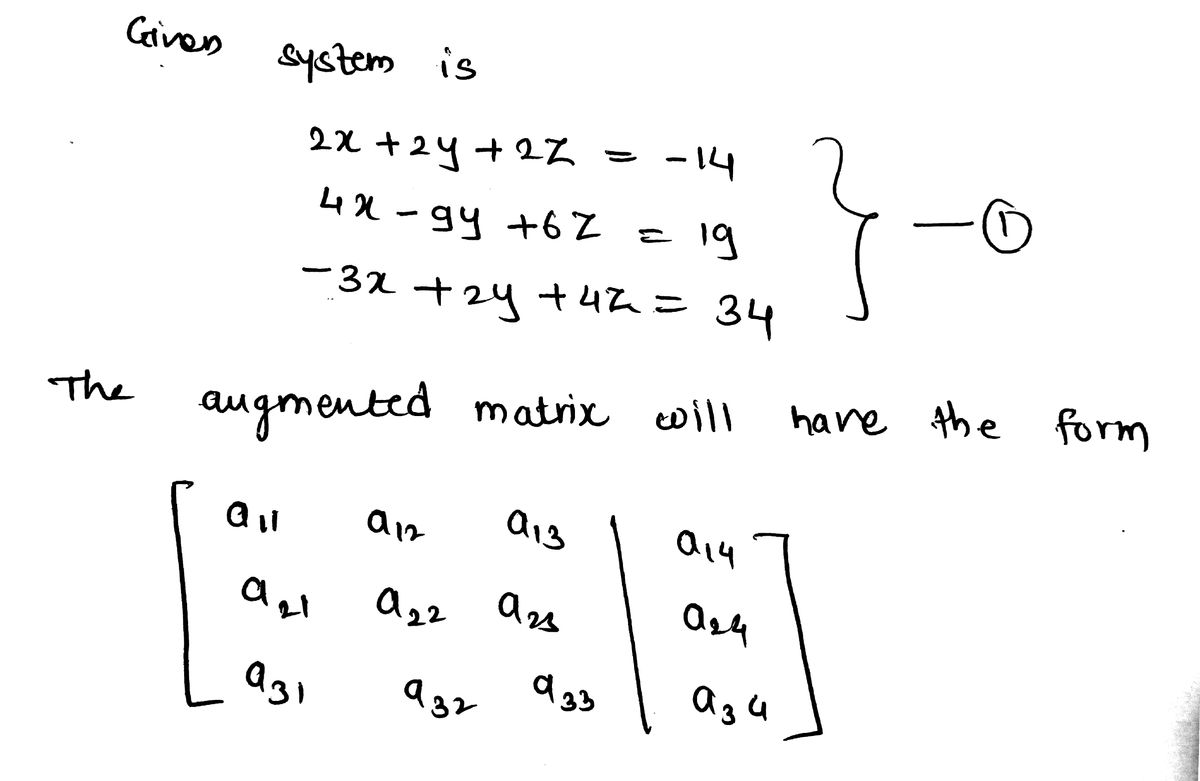 Given system is
2x + 2y + 2z = -14
4x - 9y + 6z = 19
-3x + 2y + 4z = 34
} — ①
The augmented matrix will have the form
[ a₁₁ a₁₂ a₁₃ | a₁₄ ]
[ a₂₁ a₂₂ a₂₃ | a₂₄ ]
[ a₃₁ a₃₂ a₃₃ | a₃₄ ]